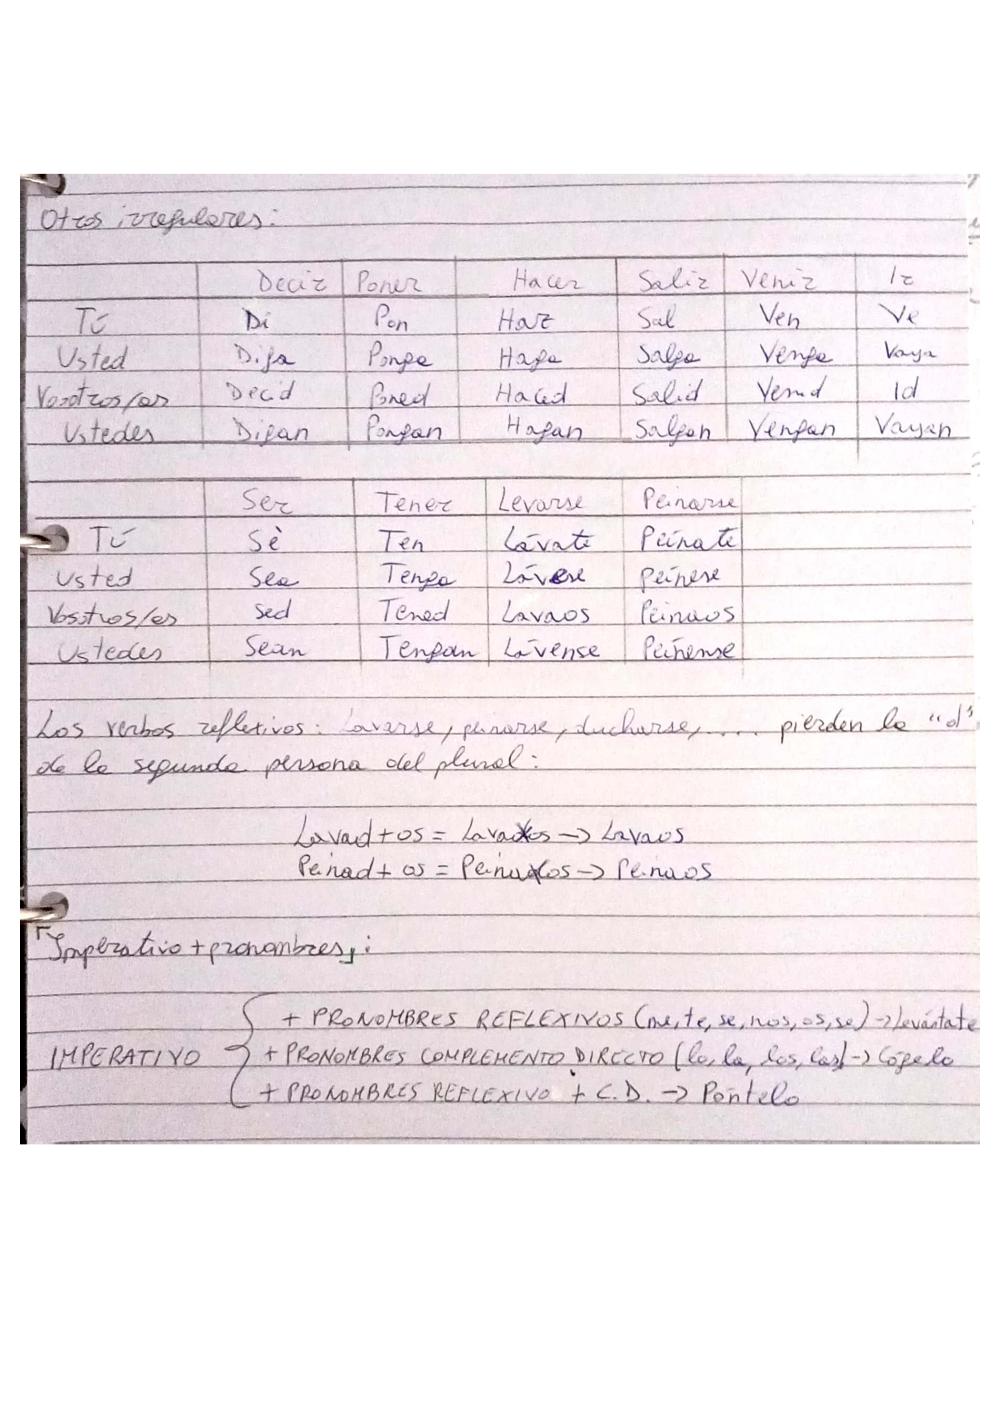 Otros irregulares:
Decir Poner Hacer Salir Venir Ir
Tú Di Pon Haz Sal Ven Ve
Usted Diga Ponga Haga Salga Venga Vaya
Vosotros/as Decid Poned Haced Salid Venid Id
Ustedes Digan Pongan Hagan Salgan Vengan Vayan
Ser Tener Levarse Peinarse
Tú Sè Ten Lávate Péinate
Usted Sea Tenga Lávese Péinese
Vosotros/as Sed Tened Lavaos Peinaos
Ustedes Sean Tengan Lávense Péinense
Los verbos refletivos: Lavarse, peinarse, ducharse, .... pierden la "d"
de la segunda persona del plural:
Lavad + os = Lavados -> Lavaos
Peinad + os = Peinados -> Peinaos
Imperativo + pronombres:
+ PRONOMBRES REFLEXIVOS (me, te, se, nos, os, se) -> Levántate
IMPERATIVO + PRONOMBRES COMPLEMENTO DIRECTO (lo, la, los, las) -> Cógelo
+ PRONOMBRES REFLEXIVO + C.D. -> Póntelo